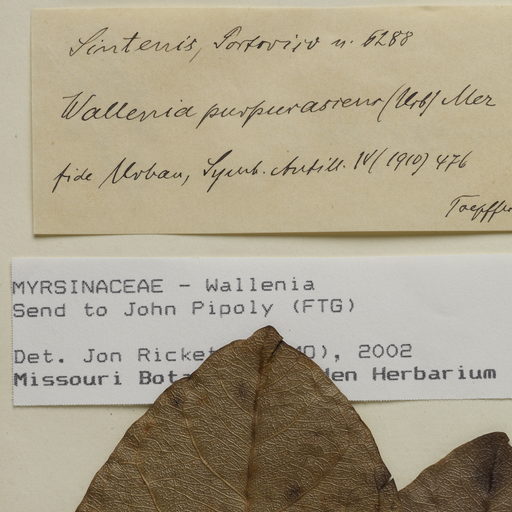 Sintenis, Portorico n. 6288
Wallenia purpurascens (Urb) Mez
fide Urban, Symb. Antill. IV (1910) 476
MYRSINACEAE - Wallenia
Send to John Pipoly (FTG)
Det. Jon 2002
Missouri Herbarium